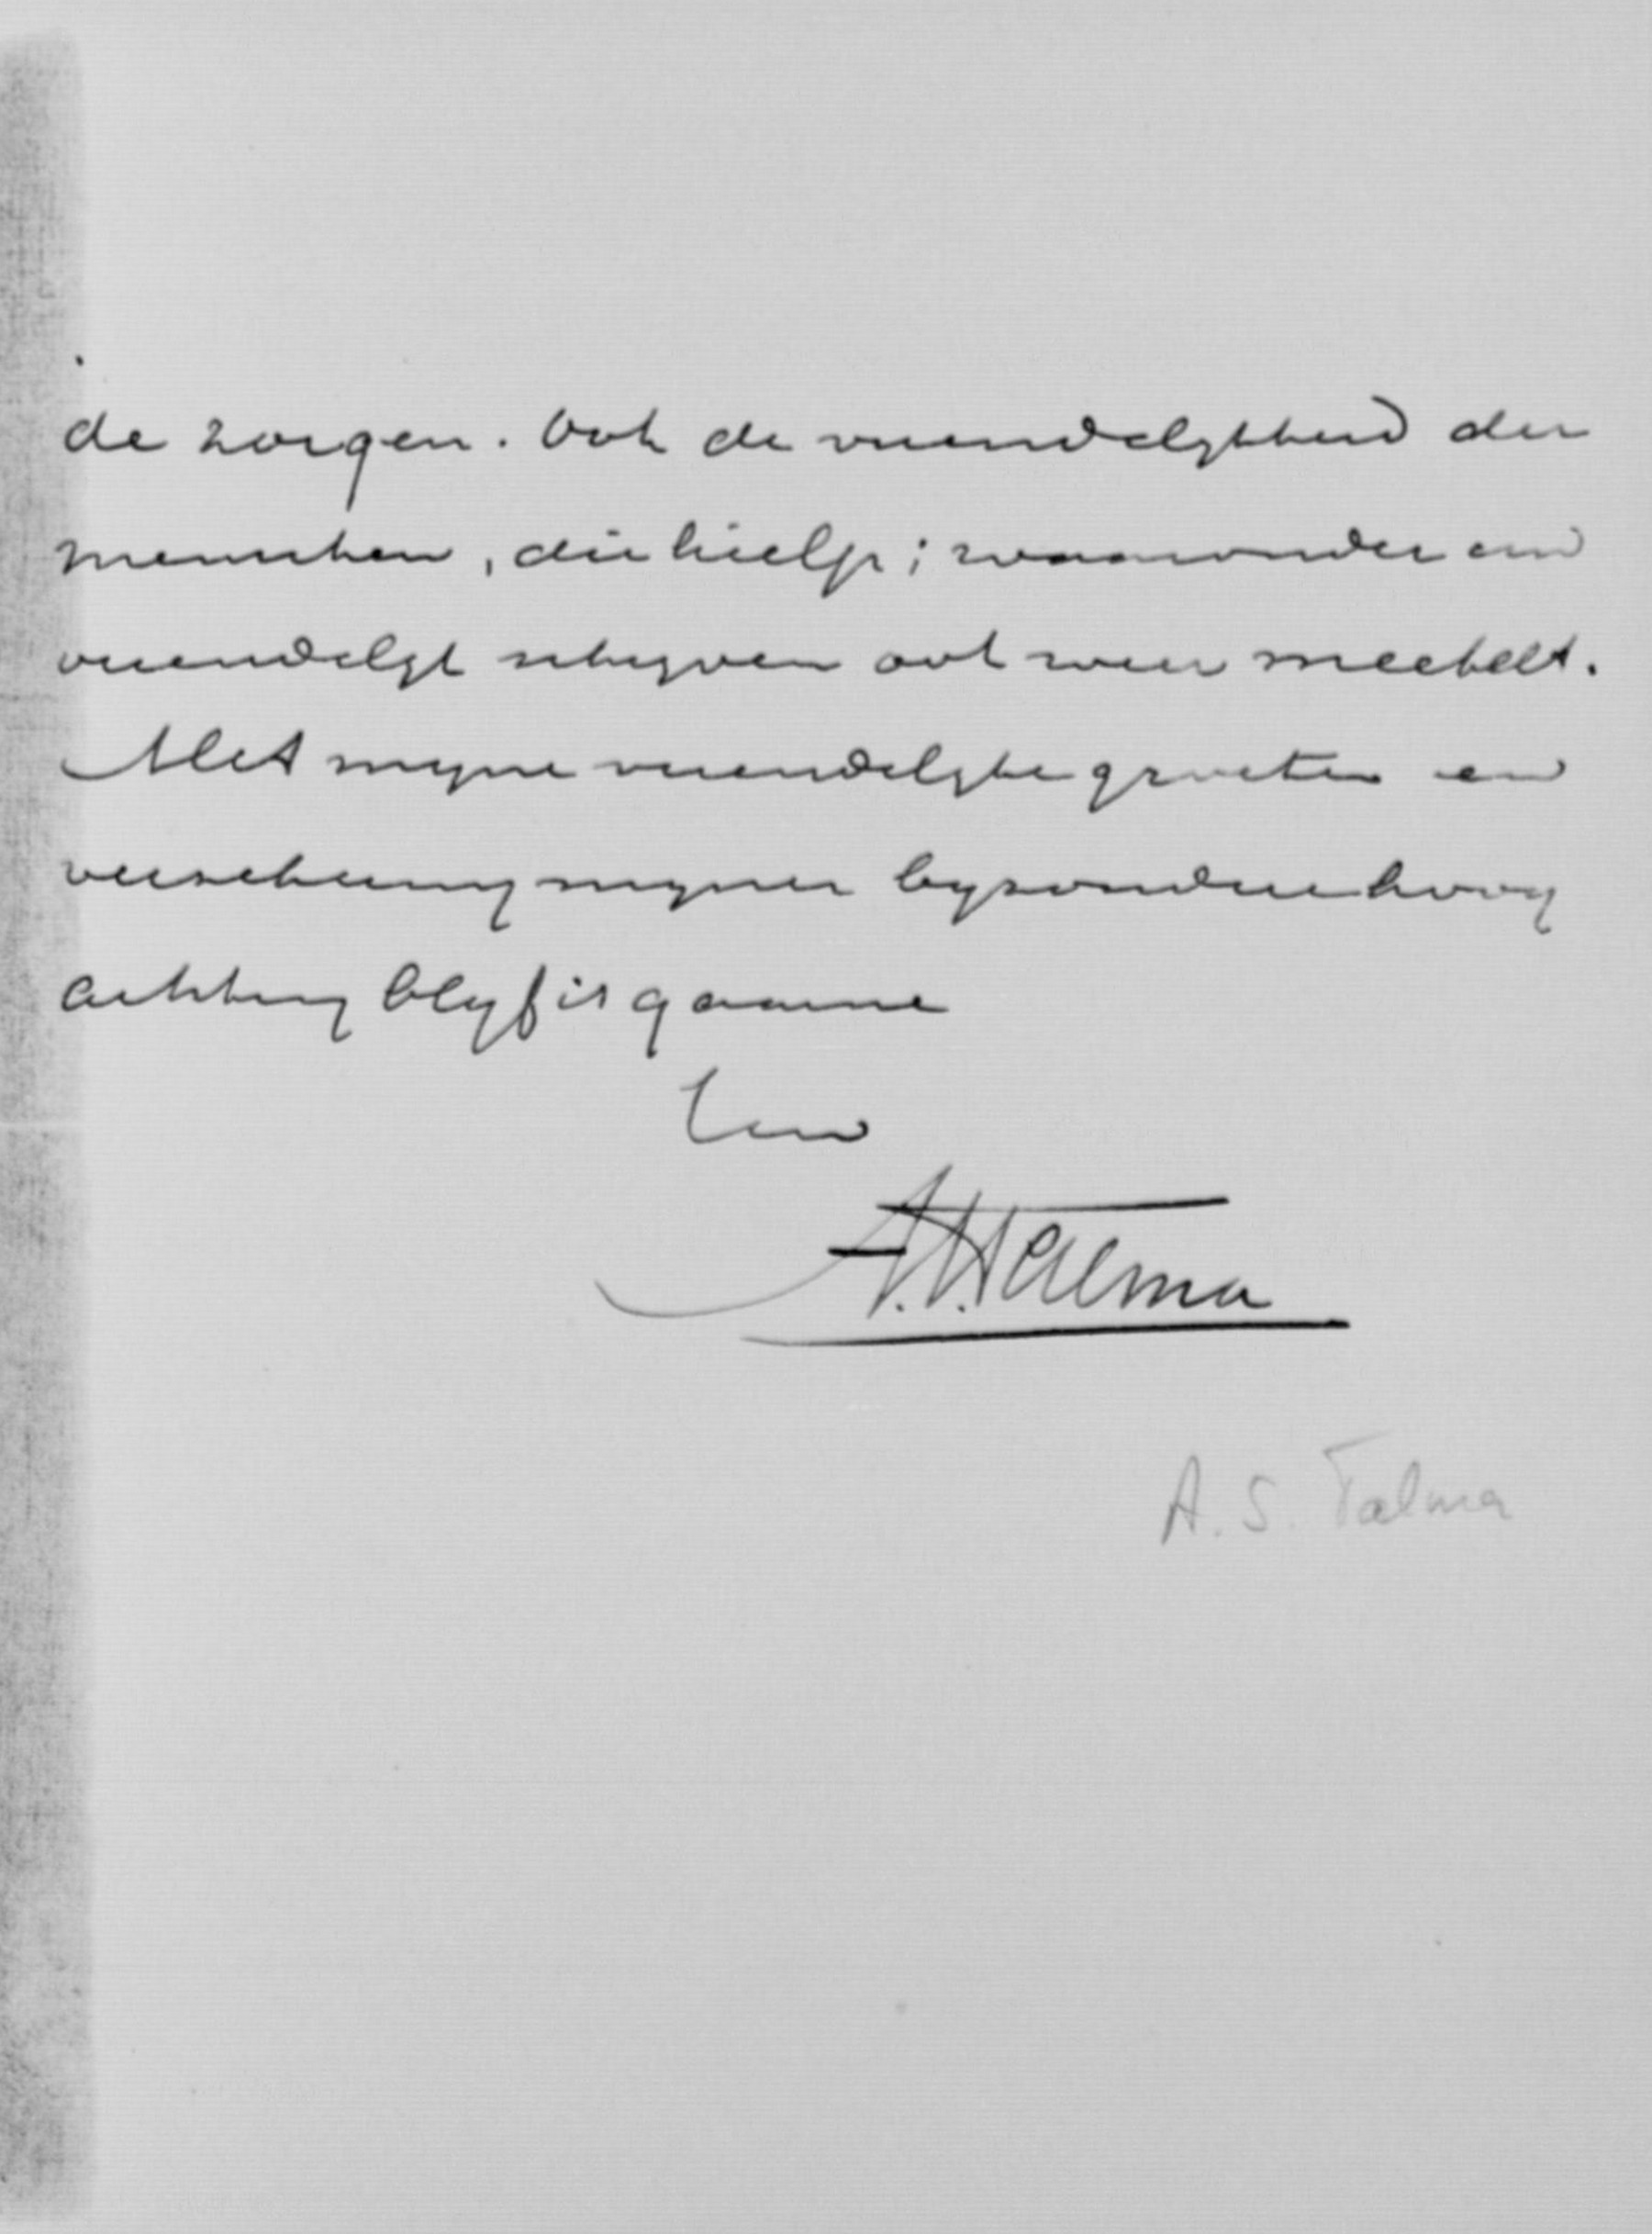 de zorgen. Ook de vriendelykheid der
menschen, die hielp; waaronder uw
vriendelyk schryven ook weer meetelt.
Met myne vriendelyke groeten en
verzekering myner byzondere hoog
achting blyf ik gaarne
Uw
A.S. Talma
A. S. Talma